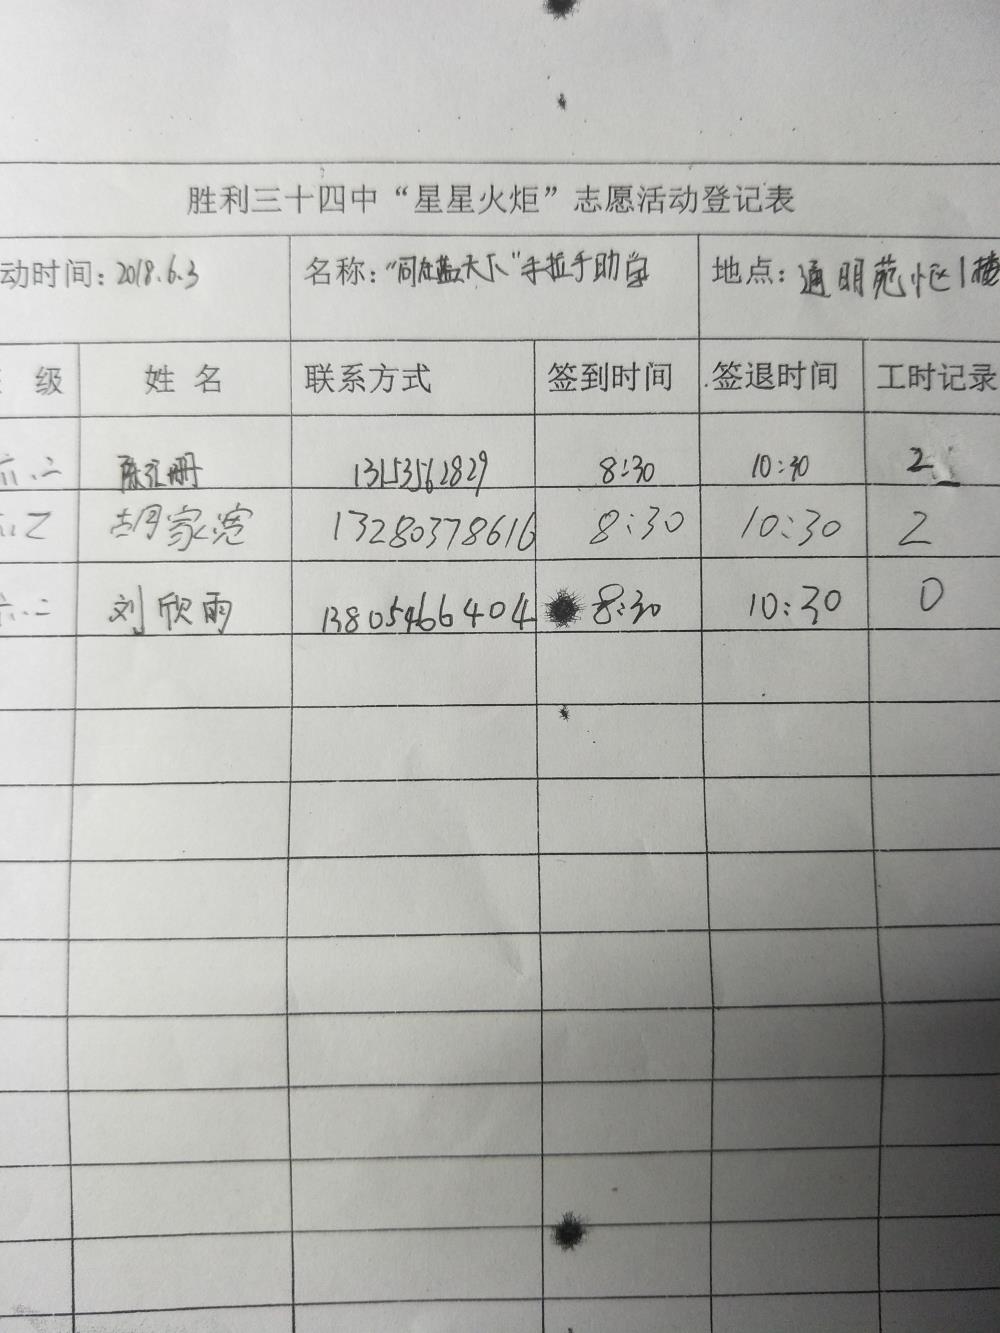 胜利三十四中“星星火炬”志愿活动登记表
动时间：2018.6.3 名称：“同在蓝天下”手拉手助学 地点：通明苑小区1楼
级 姓名 联系方式 签到时间 签退时间 工时记录
六.二 陈 册 13153562829 8:30 10:30 2
乙 胡家滢 13280378616 8:30 10:30 2
六.二 刘欣雨 13805466404 8:30 10:30 0